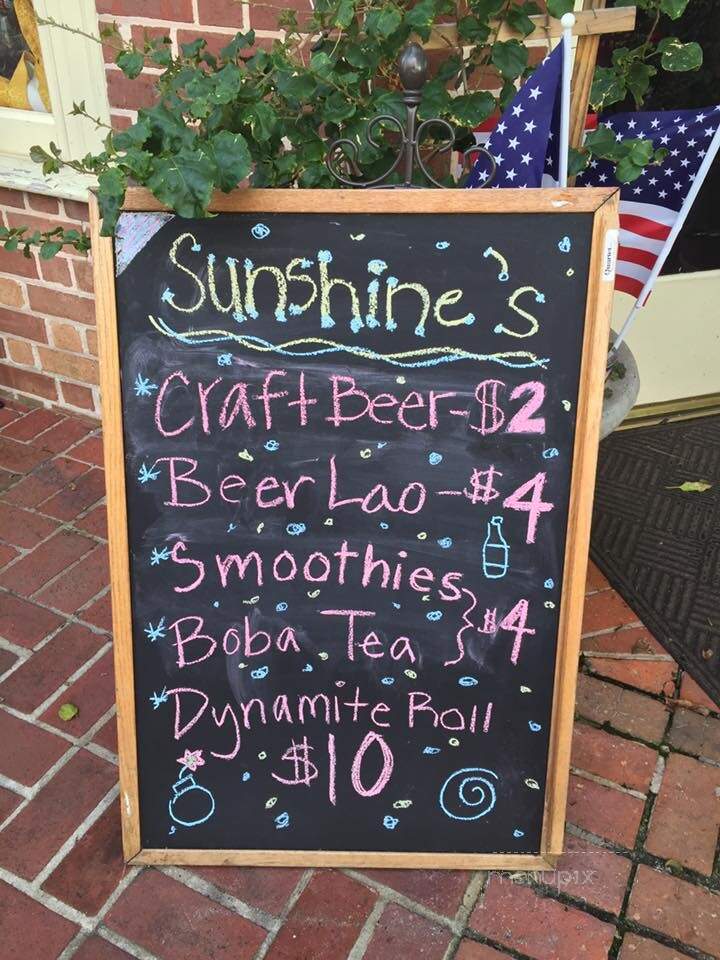 Sunshine's
Craft Beer-$2
Beer Lao-$4
Smoothies
Boba Tea } $4
Dynamite Roll
$10
Quartet
menupix